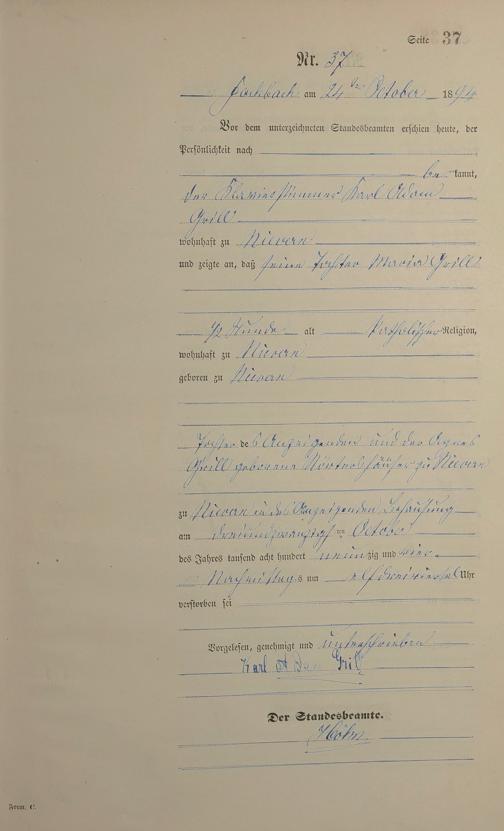 Seite 37
Nr. 37
Fachbach am 24ten October 1894
Vor dem unterzeichneten Standesbeamten erschien heute, der
Persönlichkeit nach
be kannt,
der Klavierstimmer Karl Adam
Grill
wohnhaft zu Nievern
und zeigte an, daß seine Tochter Maria Grill
1/2 Stunde alt katholischer Religion,
wohnhaft zu Nievern
geboren zu Nievern
Tochter des Anzeigenden und der Agnes
Grill geborene zu Nievern
zu Nievern in des Anzeigenden Behausung
am dreiundzwanzigsten October
des Jahres tausend acht hundert neunzig und vier
Nachmittags um elf dreiviertel Uhr
verstorben sei
Vorgelesen, genehmigt und unterschrieben
Karl Adam Grill
Der Standesbeamte.
Höhn
Form. C.